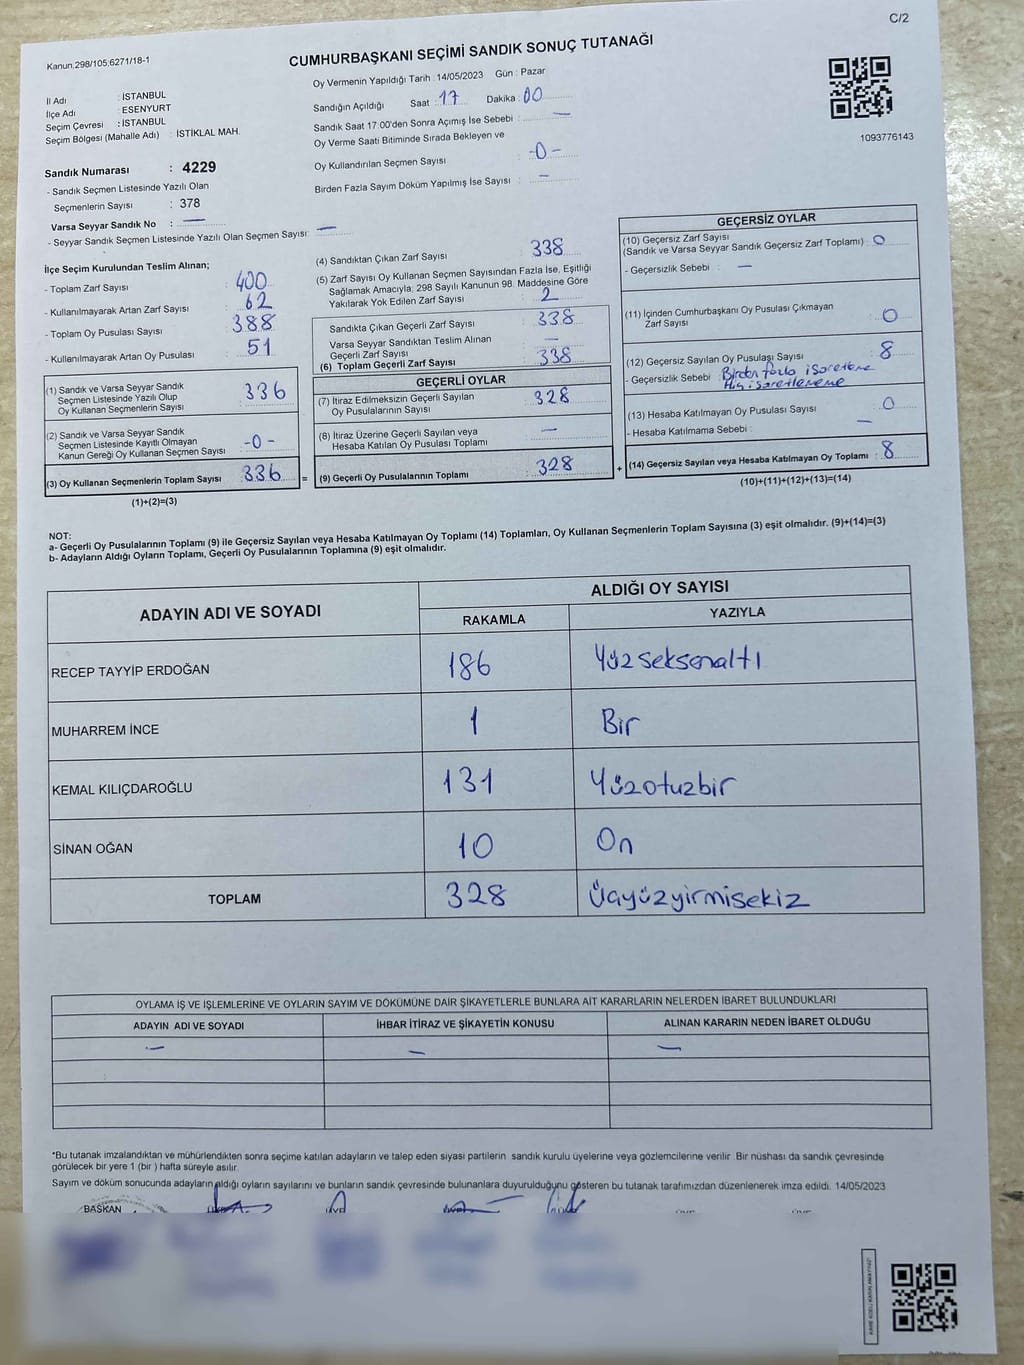 C/2
Kanun.298/105:6271/18-1
CUMHURBAŞKANI SEÇİMİ SANDIK SONUÇ TUTANAĞI
Oy Vermenin Yapıldığı Tarih : 14/05/2023 Gün : Pazar
İl Adı : İSTANBUL
İlçe Adı : ESENYURT
Seçim Çevresi : İSTANBUL
Seçim Bölgesi (Mahalle Adı) : İSTİKLAL MAH.
Sandığın Açıldığı Saat : 17 Dakika : 00
Sandık Saat 17:00'den Sonra Açımış İse Sebebi : —
Oy Verme Saati Bitiminde Sırada Bekleyen ve
Oy Kullandırılan Seçmen Sayısı : -0-
Birden Fazla Sayım Döküm Yapılmış İse Sayısı : —
1093776143
Sandık Numarası : 4229
- Sandık Seçmen Listesinde Yazılı Olan
Seçmenlerin Sayısı : 378
Varsa Seyyar Sandık No : —
- Seyyar Sandık Seçmen Listesinde Yazılı Olan Seçmen Sayısı: —
İlçe Seçim Kurulundan Teslim Alınan;
- Toplam Zarf Sayısı : 400
- Kullanılmayarak Artan Zarf Sayısı : 62
- Toplam Oy Pusulası Sayısı : 388
- Kullanılmayarak Artan Oy Pusulası : 51
(1) Sandık ve Varsa Seyyar Sandık
Seçmen Listesinde Yazılı Olup
Oy Kullanan Seçmenlerin Sayısı : 336
(2) Sandık ve Varsa Seyyar Sandık
Seçmen Listesinde Kayıtlı Olmayan
Kanun Gereği Oy Kullanan Seçmen Sayısı : -0-
(3) Oy Kullanan Seçmenlerin Toplam Sayısı : 336
(1)+(2)=(3)
=
(4) Sandıktan Çıkan Zarf Sayısı : 338
(5) Zarf Sayısı Oy Kullanan Seçmen Sayısından Fazla İse, Eşitliği
Sağlamak Amacıyla; 298 Sayılı Kanunun 98. Maddesine Göre
Yakılarak Yok Edilen Zarf Sayısı : 2
Sandıkta Çıkan Geçerli Zarf Sayısı : 338
Varsa Seyyar Sandıktan Teslim Alınan
Geçerli Zarf Sayısı : —
(6) Toplam Geçerli Zarf Sayısı : 338
GEÇERLİ OYLAR
(7) İtiraz Edilmeksizin Geçerli Sayılan
Oy Pusulalarının Sayısı : 328
(8) İtiraz Üzerine Geçerli Sayılan veya
Hesaba Katılan Oy Pusulası Toplamı : —
(9) Geçerli Oy Pusulalarının Toplamı : 328
+
GEÇERSİZ OYLAR
(10) Geçersiz Zarf Sayısı
(Sandık ve Varsa Seyyar Sandık Geçersiz Zarf Toplamı) : 0
- Geçersizlik Sebebi : —
(11) İçinden Cumhurbaşkanı Oy Pusulası Çıkmayan
Zarf Sayısı : 0
(12) Geçersiz Sayılan Oy Pusulası Sayısı : 8
- Geçersizlik Sebebi : Birden fazla işaretleme
Hiç işaretlememe
(13) Hesaba Katılmayan Oy Pusulası Sayısı : 0
- Hesaba Katılmama Sebebi : —
(14) Geçersiz Sayılan veya Hesaba Katılmayan Oy Toplamı : 8
(10)+(11)+(12)+(13)=(14)
NOT:
a- Geçerli Oy Pusulalarının Toplamı (9) ile Geçersiz Sayılan veya Hesaba Katılmayan Oy Toplamı (14) Toplamları, Oy Kullanan Seçmenlerin Toplam Sayısına (3) eşit olmalıdır. (9)+(14)=(3)
b- Adayların Aldığı Oyların Toplamı, Geçerli Oy Pusulalarının Toplamına (9) eşit olmalıdır.
ADAYIN ADI VE SOYADI
ALDIĞI OY SAYISI
RAKAMLA YAZIYLA
RECEP TAYYİP ERDOĞAN 186 Yüzseksenaltı
MUHARREM İNCE 1 Bir
KEMAL KILIÇDAROĞLU 131 Yüzotuzbir
SİNAN OĞAN 10 On
TOPLAM 328 Üçyüzyirmisekiz
OYLAMA İŞ VE İŞLEMLERİNE VE OYLARIN SAYIM VE DÖKÜMÜNE DAİR ŞİKAYETLERLE BUNLARA AİT KARARLARIN NELERDEN İBARET BULUNDUKLARI
ADAYIN ADI VE SOYADI İHBAR İTİRAZ VE ŞİKAYETİN KONUSU ALINAN KARARIN NEDEN İBARET OLDUĞU
— — —
*Bu tutanak imzalandıktan ve mühürlendikten sonra seçime katılan adayların ve talep eden siyasi partilerin sandık kurulu üyelerine veya gözlemcilerine verilir. Bir nüshası da sandık çevresinde
görülecek bir yere 1 (bir ) hafta süreyle asılır.
Sayım ve döküm sonucunda adayların aldığı oyların sayılarını ve bunların sandık çevresinde bulunanlara duyurulduğunu gösteren bu tutanak tarafımızdan düzenlenerek imza edildi. 14/05/2023
BAŞKAN